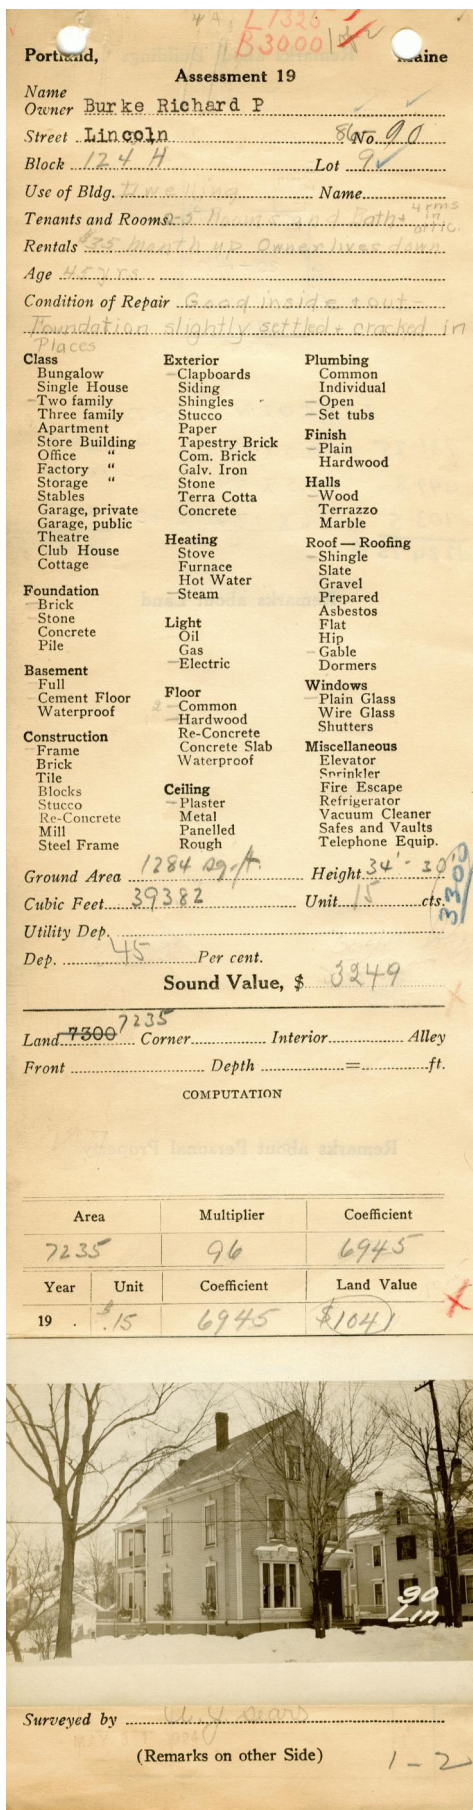 L1325
B3000
Portland, Maine
Assessment 19
Name
Owner Burke Richard P
Street Lincoln 86- No. 90
Block 124 H Lot 9
Use of Bldg. Dwelling Name
Tenants and Rooms. 2-5 Rooms and Bath + 4 rms in attic.
Rentals $35 month up Owner lives down
Age 45 yrs
Condition of Repair Good inside + out -
Foundation slightly settled + cracked in
Places
Class
Bungalow
Single House
-Two family
Three family
Apartment
Store Building
Office "
Factory "
Storage "
Stables
Garage, private
Garage, public
Theatre
Club House
Cottage
Foundation
-Brick
-Stone
Concrete
Pile
Basement
-Full
-Cement Floor
Waterproof
Construction
-Frame
Brick
Tile
Blocks
Stucco
Re-Concrete
Mill
Steel Frame
Exterior
-Clapboards
Siding
Shingles
Stucco
Paper
Tapestry Brick
Com. Brick
Galv. Iron
Stone
Terra Cotta
Concrete
Heating
Stove
Furnace
Hot Water
-Steam
Light
Oil
Gas
-Electric
Floor
2 -Common
-Hardwood
Re-Concrete
Concrete Slab
Waterproof
Ceiling
-Plaster
Metal
Panelled
Rough
Plumbing
Common
Individual
-Open
-Set tubs
Finish
-Plain
Hardwood
Halls
-Wood
Terrazzo
Marble
Roof — Roofing
-Shingle
Slate
Gravel
Prepared
Asbestos
Flat
Hip
-Gable
Dormers
Windows
-Plain Glass
Wire Glass
Shutters
Miscellaneous
Elevator
Sprinkler
Fire Escape
Refrigerator
Vacuum Cleaner
Safes and Vaults
Telephone Equip.
Ground Area 1284 sq.ft. Height 34' - 30'
Cubic Feet 39382 Unit 15 cts.
3300
Utility Dep.
Dep. 45 Per cent.
Sound Value, $ 3249
Land 7300 7235 Corner Interior Alley
Front Depth = ft.
COMPUTATION
Remarks about Personal Property
Area Multiplier Coefficient
7235 96 6945
Year Unit Coefficient Land Value
19 . $.15 6945 $1041
90
Lin
Surveyed by
(Remarks on other Side)
1-2